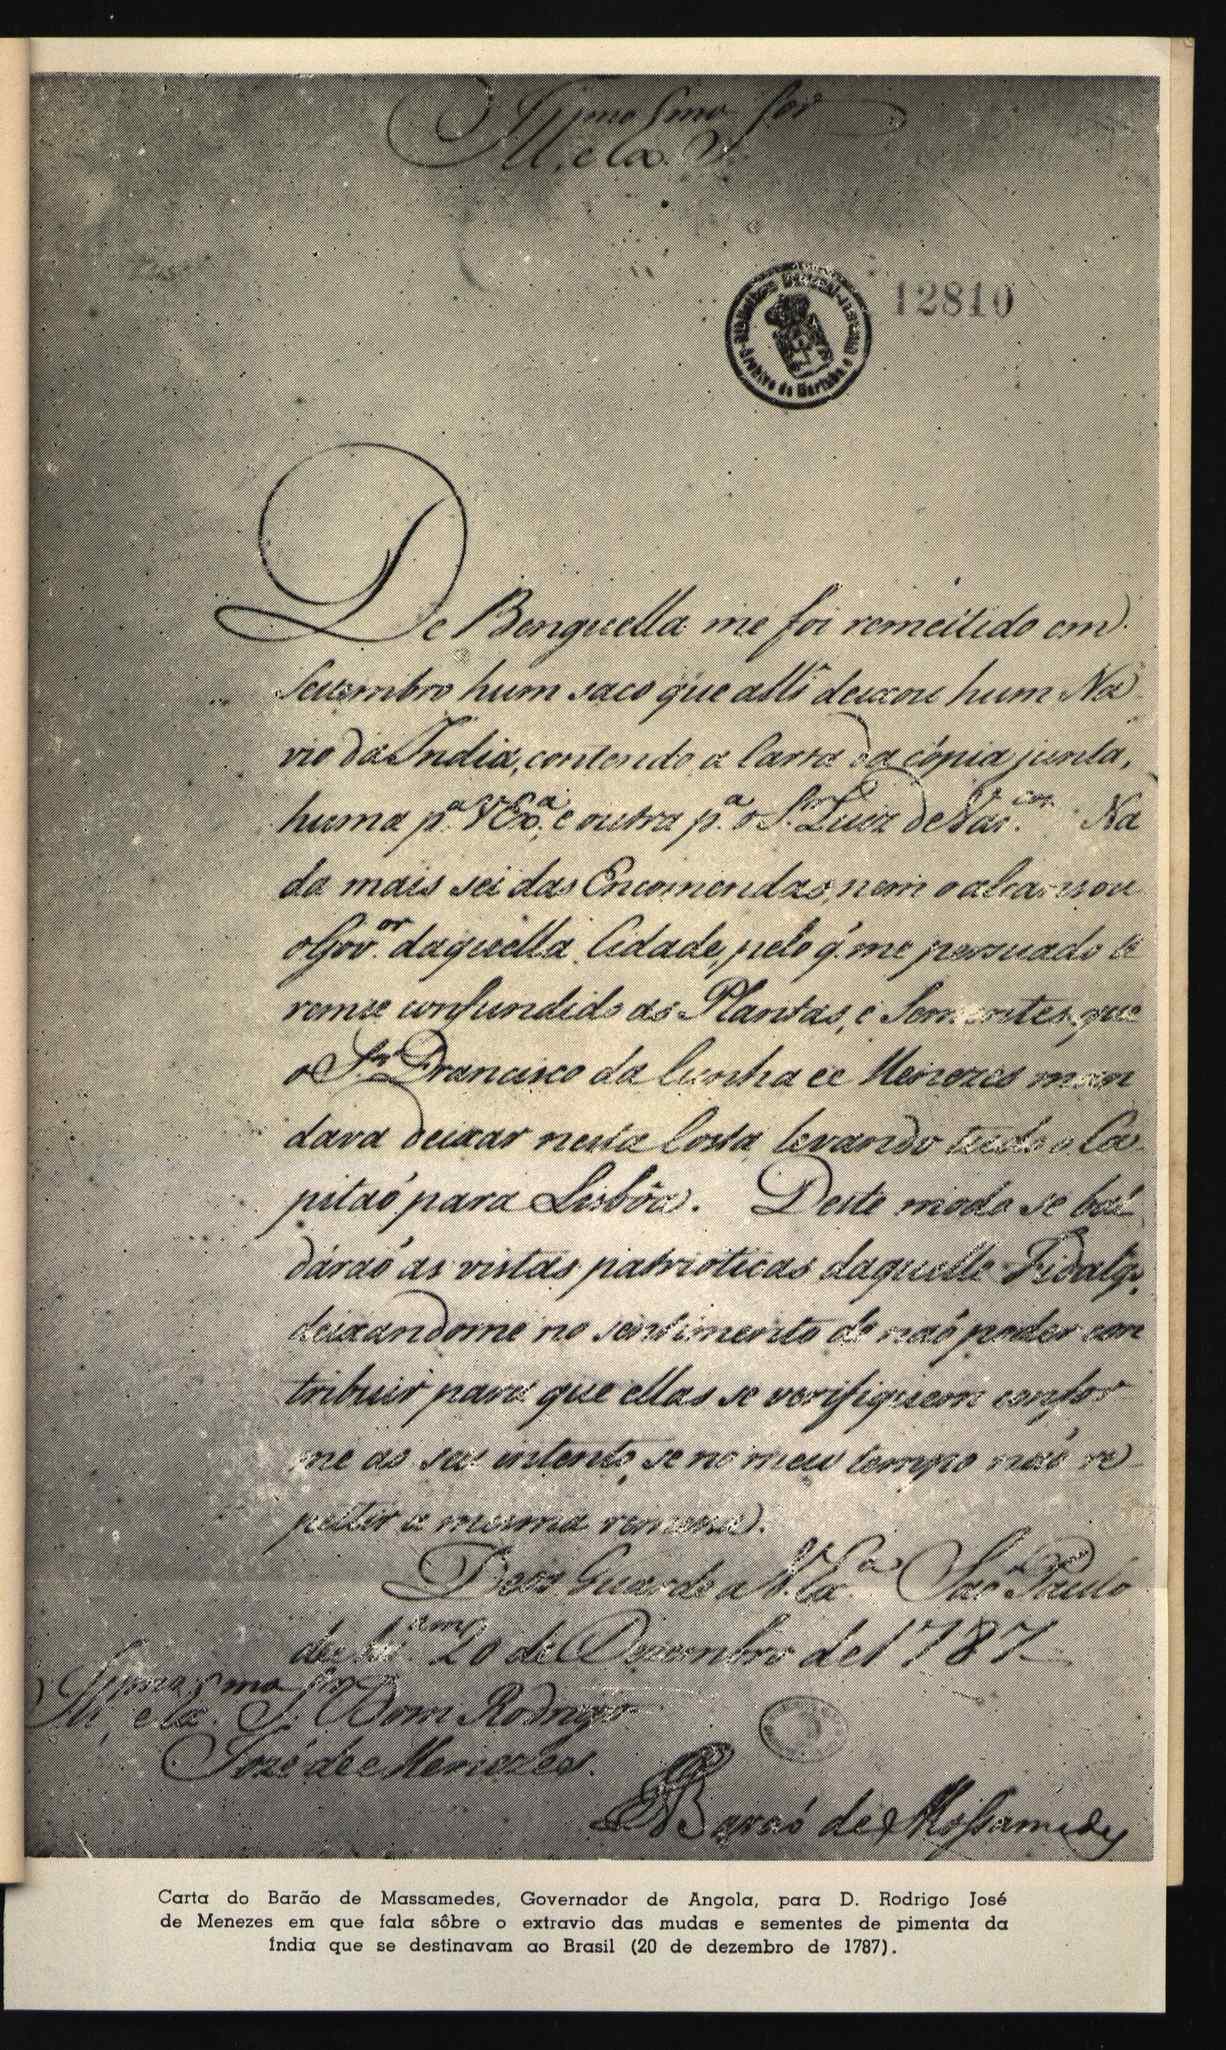 Ill.mo e Ex.mo Sor
12810
De Benguella me foi remeitido em
Setembro hum saco que alli deixou hum Na
vio da India, contendo a Carta da cópia junta,
huma p.a V Ex.a, e outra p.a o S.r Luiz de Vas.cos Na
da mais sei das Encomendas, nem o alcansou
o Gov.or daquella Cidade, pelo q. me persuado te
remse confundido as Plantas, e Sementes que
o S.r Francisco da Cunha e Menezes man
dava deixar nesta Costa, levando tudo o Ca
pitaó para Lisbôa. Deste modo se bal
dáraó as vistas patrioticas daquelle Fidalgo,
deixandome no sentimento de naó poder con
tribuir para que ellas se verifiquem confor
me ao seu intento, se no meu tempo naó re
petir a mesma remessa.
Deos Guarde a V. Ex.a Saó Paulo
de 20 de Dezembro de 1787
Ill.mo e Ex.mo S.r Dom Rodrigo
José de Menezes.
Baraó de Mossamedes
Carta do Barão de Massamedes, Governador de Angola, para D. Rodrigo José
de Menezes em que fala sôbre o extravio das mudas e sementes de pimenta da
Índia que se destinavam ao Brasil (20 de dezembro de 1787).